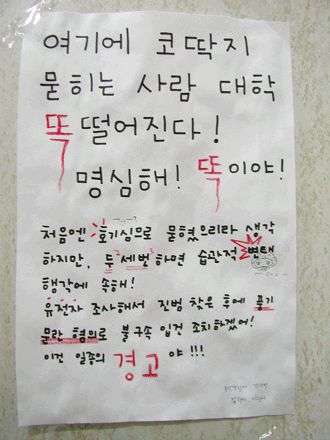 여기에 코딱지
묻히는 사람 대학
똑 떨어진다!
명심해! 똑이야!
처음엔 호기심으로 묻혔으리라 생각
하지만, 두 세번 하면 습관적 변태
행각에 속해!
유전자 조사해서 진범 찾은 후에 풍기
문란 혐의로 불구속 입건 조치하겠어!
이건 일종의 경고야!!!